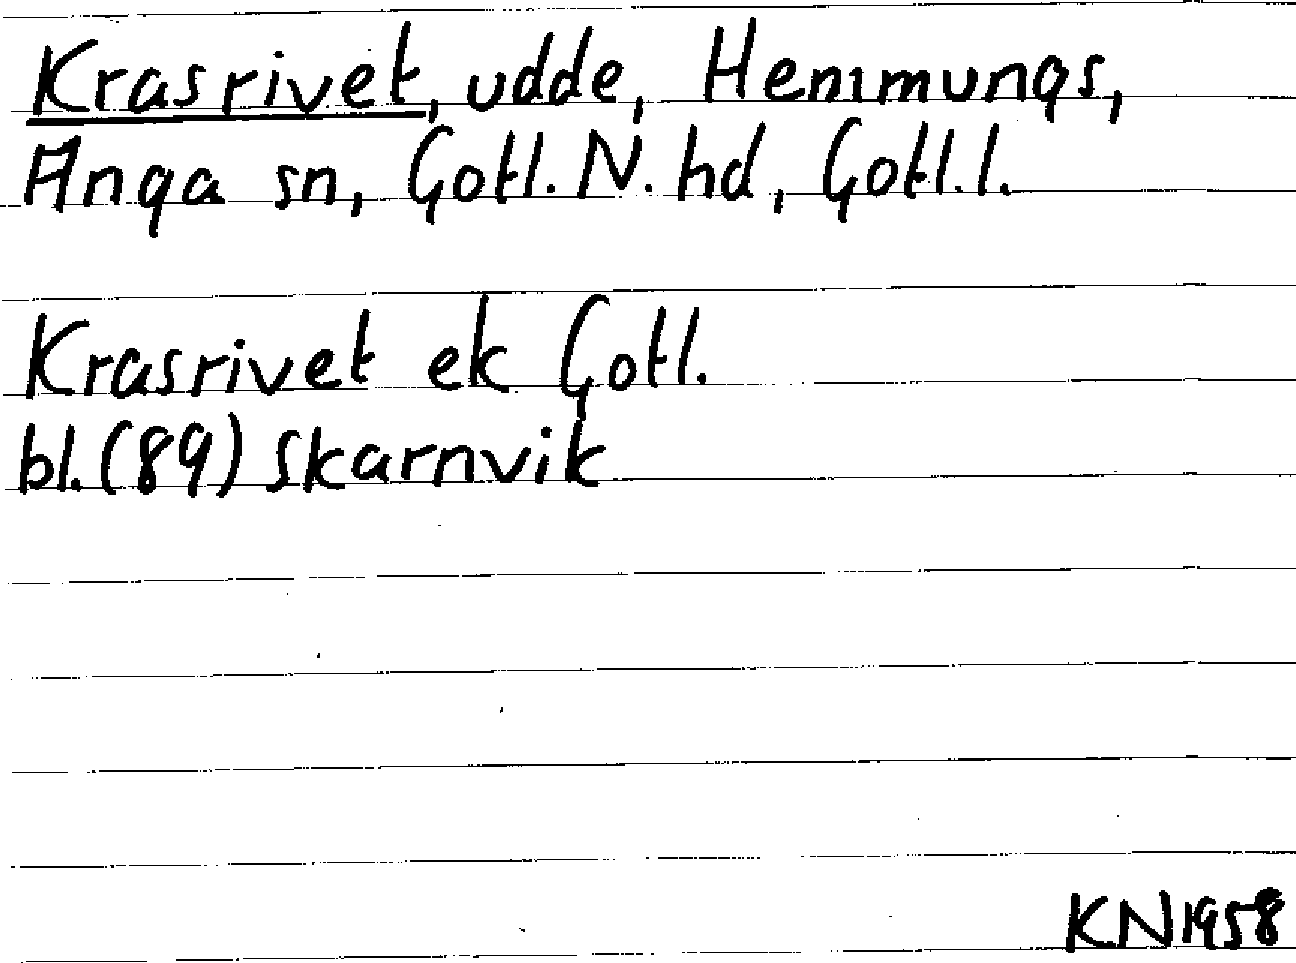 Krasrivet, udde, Hemmungs,
Anga sn, Gotl. N. hd, Gotl. l.
Krasrivet ek Gotl.
bl. (89) Skarnvik
KN 1958